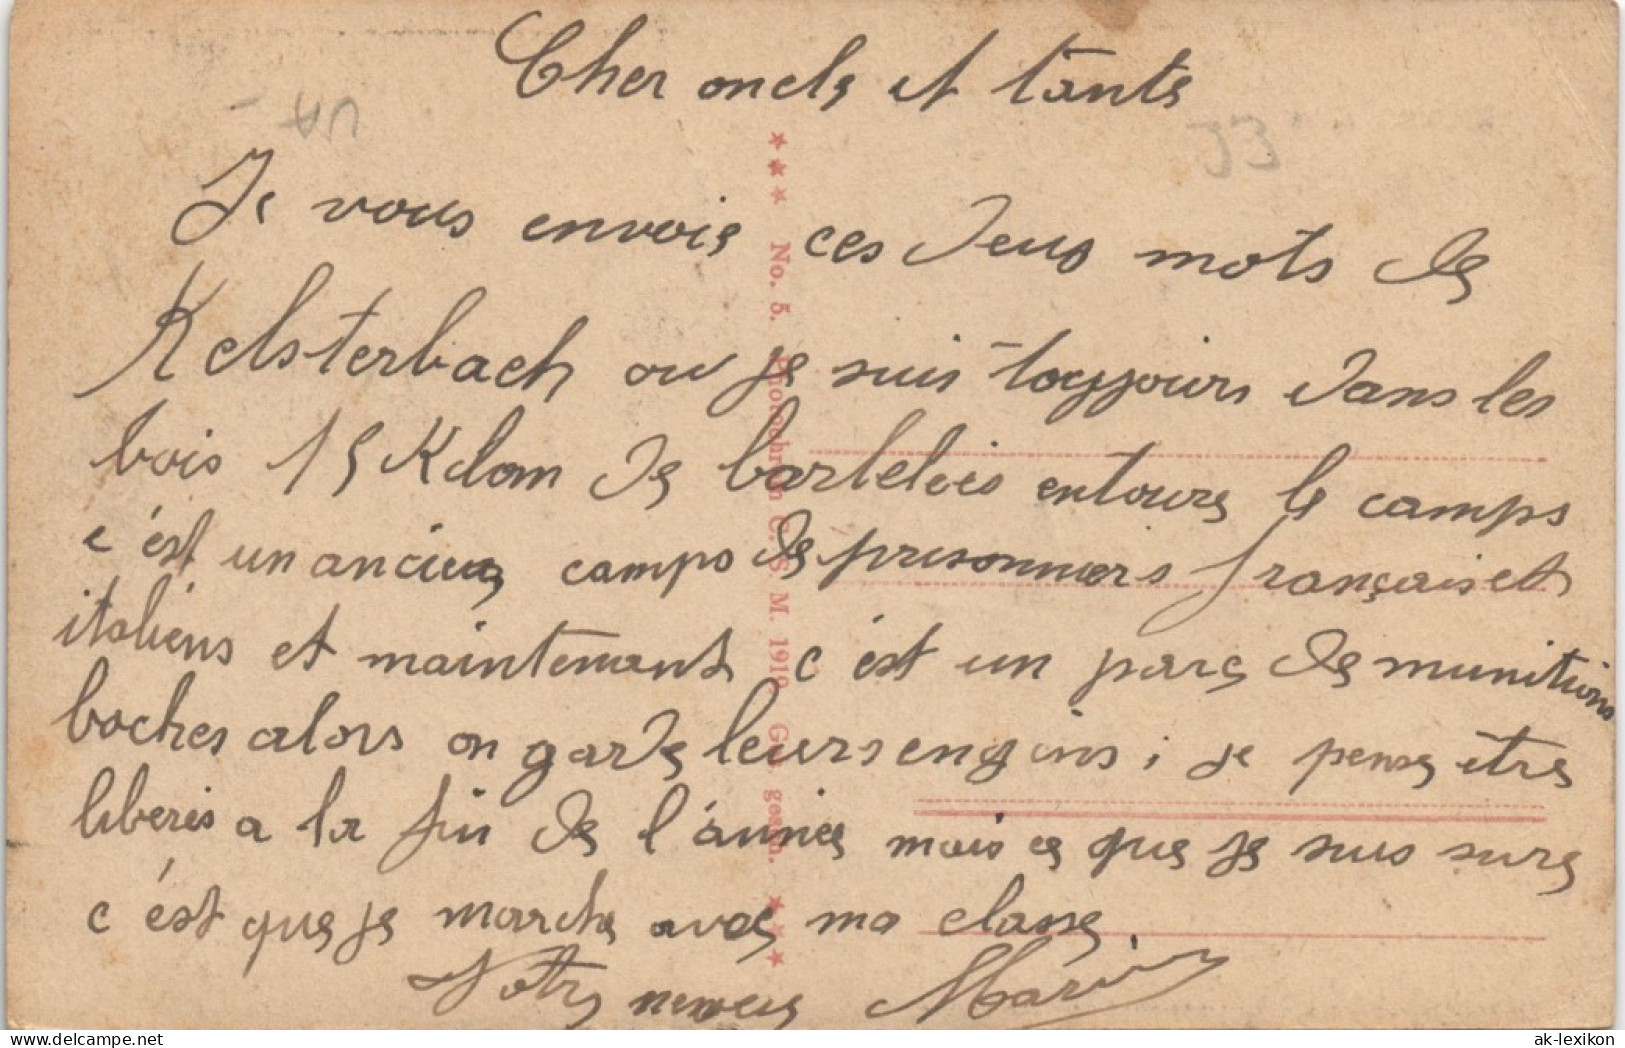 Cher oncle et tante
Je vous envois ces deus mots de
Kelsterbach ou je suis toujjours dans les
bois 15 Kdom de barbelées entoure le camps
c'est un ancien camps de prisonniers français et
italiens et maintenant c'est un parc de munitions
boches alors on garde leurs engins ; je pense être
liberés a la fin de l'année mais ce que je suis sure
c'est que je marche avec ma classe.
Votre neveus Marius
★★★ No. 5. Photochromie C. S. M. 1918. Ges. gesch. ★★★
33
hc-lle.com ak-lexikon